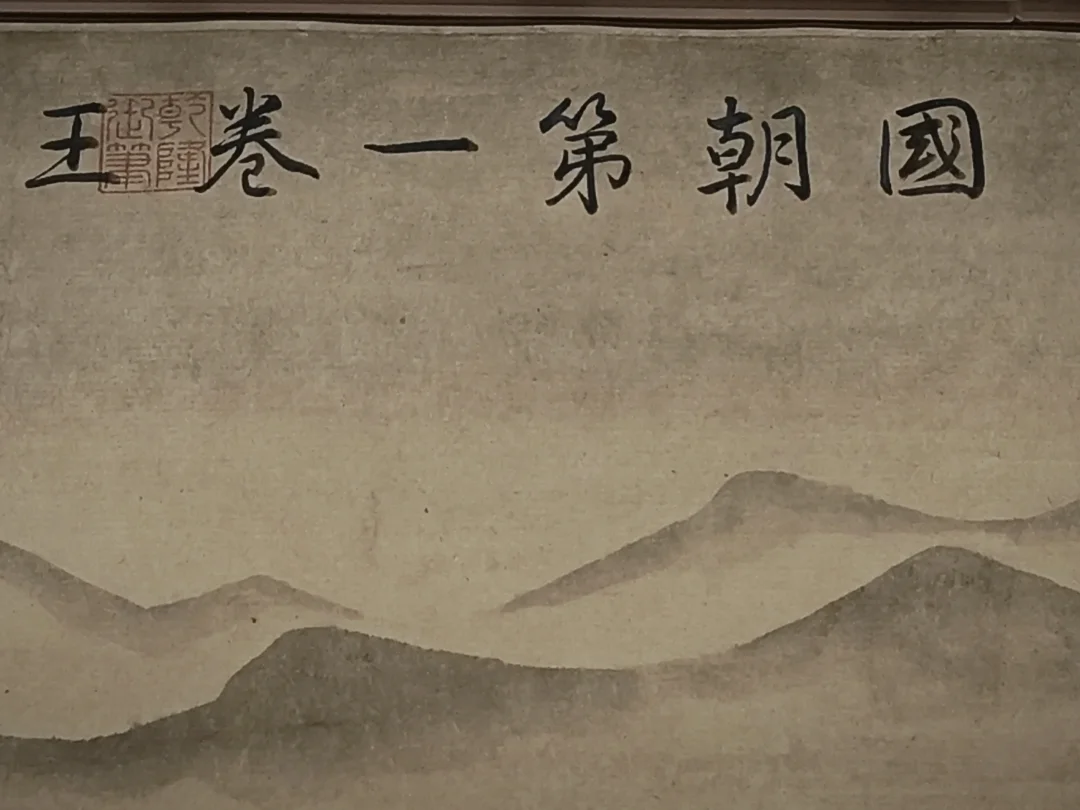 國朝第一卷王
乾隆
御筆